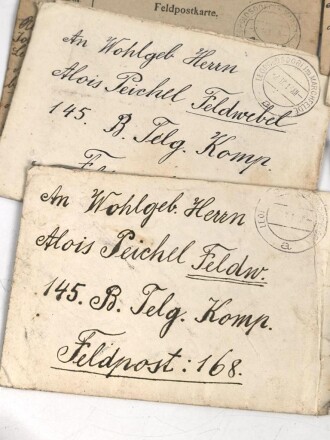 Feldpostkarte.
An Wohlgeb Herrn
Alois Peichel Feldwebel
145. B. Telg. Komp.
An Wohlgeb. Herrn
Alois Peichel Feldw.
145. B. Telg. Komp.
Feldpost: 168.